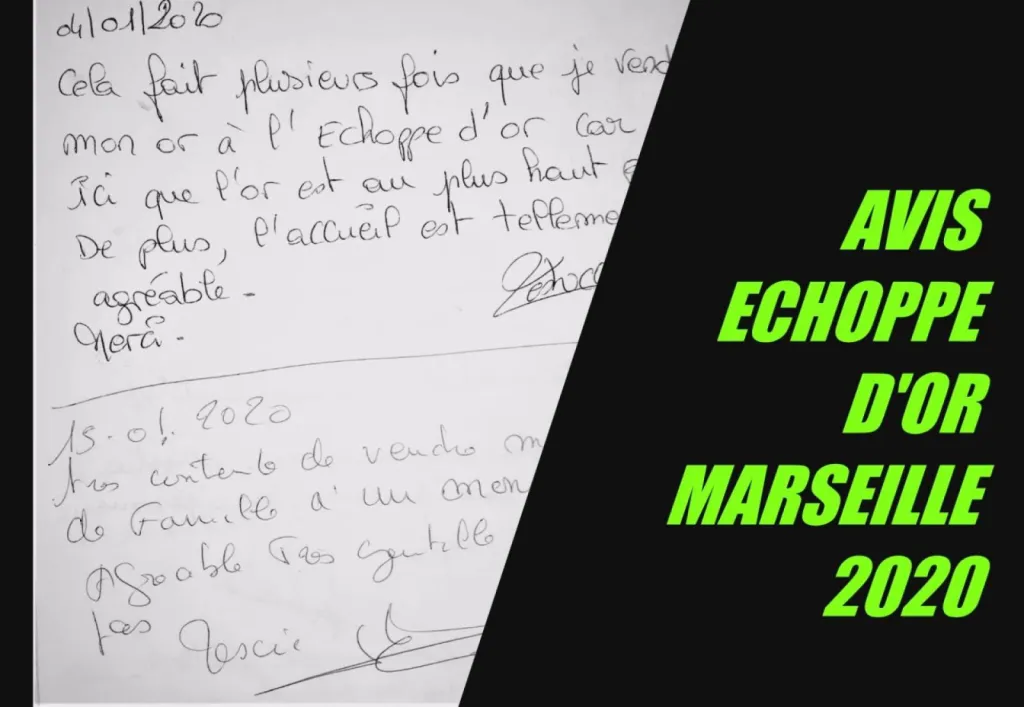 04/01/2020
Cela fait plusieurs fois que je vend
mon or à l'Echoppe d'or car
Ici que l'or est au plus haut
De plus, l'accueil est telleme
agréable -
15.01.2020
très contente de vendre m
de Famille a' un
Agréable Tres gentille
AVIS
ECHOPPE
D'OR
MARSEILLE
2020